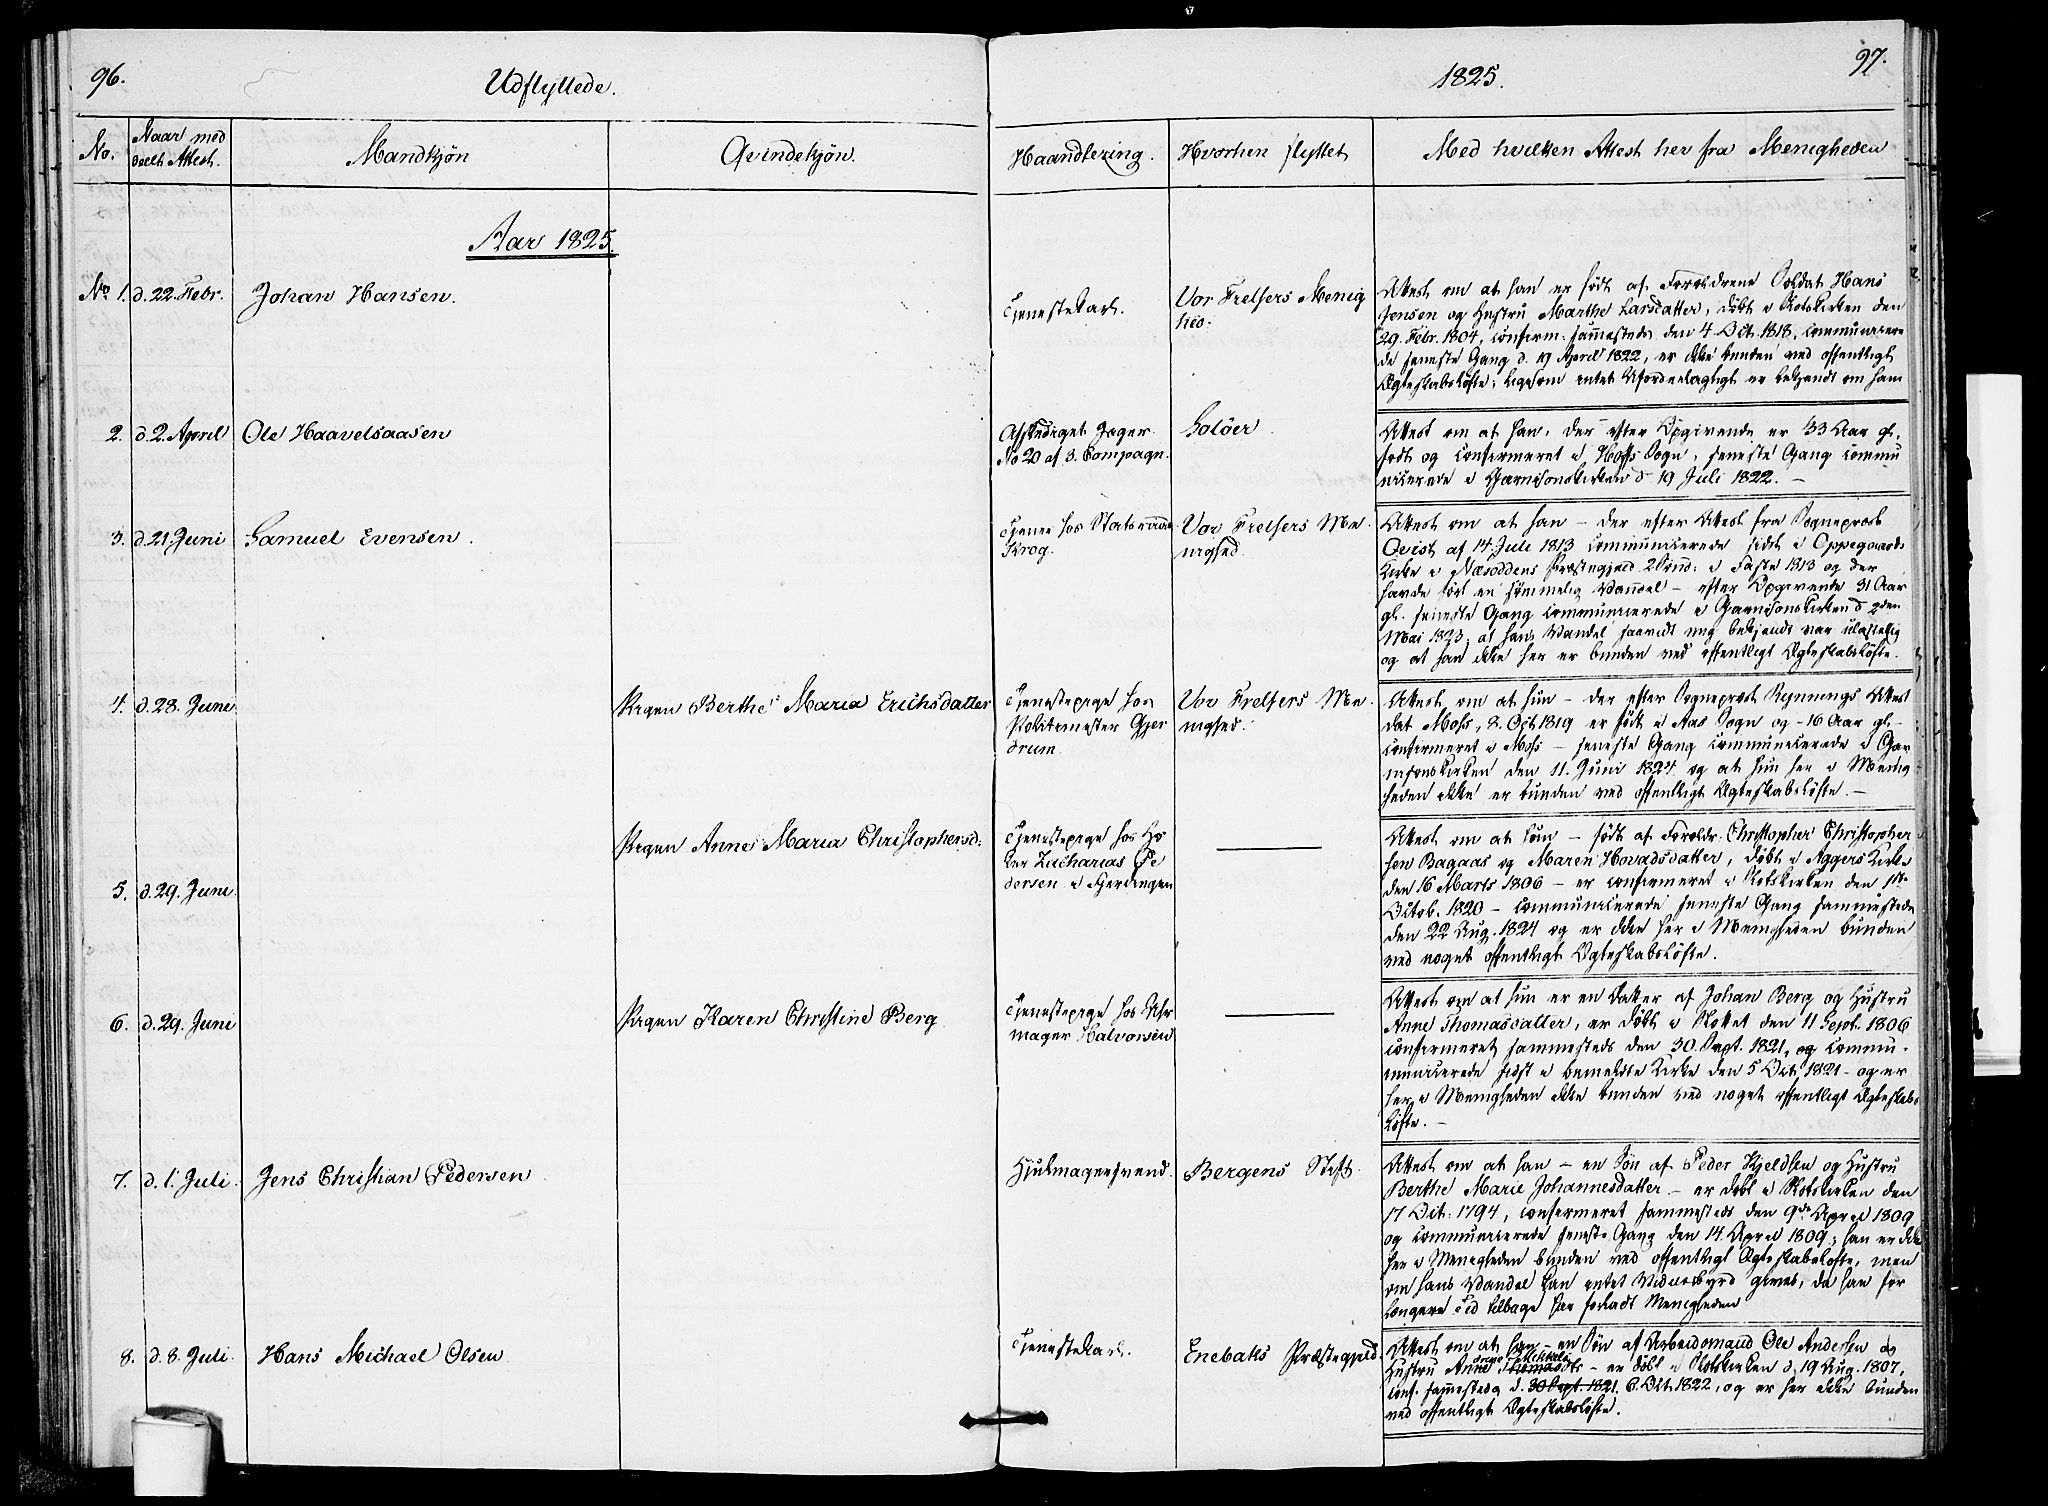 96.
Udflyttede.
1825.
97.
No.
Naar med
Attest.
Mandkjøn
Qvindekjøn.
Haandtering.
Hvorhen flyttet
Med hvilken Attest her fra Menigheden
Aar 1825.
No 1. d. 22. Febr. Johan Hansen.
Tjenestekarl.
Vor Frelsers Menig
hed.
Attest om at han er født af Forældrene Soldat Hans
Jensen og Hustru Marthe Larsdatter, døbt i Slotskirken den
29. Febr. 1804, confirm: sammesteds den 4. Oct. 1818, communicere
de seneste Gang d. 19 April 1822, er ikke bunden ved offentligt
Ægteskabsløfte; ligesom intet Ufordeelagtigt er bekjendt om ham
2. d. 2. April Ole Haavelsaasen
Afskediget Jæger
No 20 af 3. Compagn.
Soløer.
Attest om at han, der efter Opgivende er 33 Aar gl.
født og confirmeret i Hoffs Sogn, seneste Gang commu
nicerede i Garnisonskirken d 19 Juli 1822. —
3. d. 21. Juni Samuel Evensen.
Tjener hos Statsraad
Krog.
Vor Frelsers Me
nighed.
Attest om at han – der efter Attest fra Sognepræst
Qvist af 14 Juli 1813 communicerede sidst i Oppegaards
Kirke i Næsoddens Præstegjeld 2 Sønd: i Faste 1813 og der
havde ført en sømmelig Vandel – efter Opgivende 31 Aar
gl. seneste Gang communicerede i Garnisonskirken d 2den
Mai 1823; at hans Vandel saavidt mig bekjendt var ulastelig
og at han ikke her er bunden ved offentligt Ægteskabsløfte.
4. d. 28. Juni
Pigen Berthe Maria Erichsdatter
Tjenestepige hos
Politimester Gjer
drum.
Vor Frelsers Me
nighed.
Attest om at hun – der efter Sognepræst Attest
dat Moss, 8. Oct 1819 er født i Aas Sogn og – 16 Aar gl. –
confirmeret i Moss – seneste Gang communicerede i Gar
nisonskirken den 11. Juni 1824 og at hun her i Menig
heden ikke er bunden ved offentligt Ægteskabsløfte. —
5. d. 29. Juni
Pigen Anne Maria Christophersd.
Tjenestepige hos Hø
ker Zacharias Pe
dersen i Fjerdingen
Attest om at hun – født af Forældr. Christopher Christopher
sen Bagaas og Maren Hovadsdatter, døbt i Aggers Kirke
den 16 Marts 1806 – er confirmeret i Slotskirken den 1ste
Octob. 1820 – communicerede seneste Gang sammesteds
den 22 Aug. 1824 og er ikke her i Menigheden bunden
ved noget offentligt Ægteskabsløfte.
6. d. 29. Juni
Pigen Karen Christine Berg
Tjenestepige hos Uhr
mager Halvorsen
Attest om at hun er en Datter af Johan Berg og Hustru
Anne Thomasdatter, er døbt i Slottet den 11 Sept. 1806
confirmeret sammesteds den 30. Sept. 1821, og commu-
nicerede sidst i bemeldte Kirke den 5 Oct. 1821 – og er
her i Menigheden ikke bunden ved noget offentligt Ægteskabs
løfte. —
7. d. 1. Juli. Jens Christian Pedersen
Hjulmagersvend.
Bergens Stift.
Attest om at han – en Søn af Peder Kjeldsen og Hustru
Berthe Marie Johannesdatter – er døbt i Slotskirken den
17 Oct. 1794, confirmeret sammesteds den 9de April 1809
og communicerede seneste Gang den 14. April 1809; han er ikke
her i Menigheden bunden ved offentligt Ægteskabsløfte, men
om hans Vandel kan intet Vidnesbyrd gives, da han for
længere Tid tilbage har forladt Menigheden
8. d. 8. Juli. Hans Michael Olsen
Tjenestekarl.
Enebaks Præstegjeld.
Attest om at han – en Søn af Arbeidsmand Ole Andersen og
Hustru Anne – er døbt i Slotskirken d. 19 Aug. 1807,
conf. sammesteds d. 30 Sept. 1821. 6. Oct. 1822, og er her ikke bunden
ved offentligt Ægteskabsløfte.